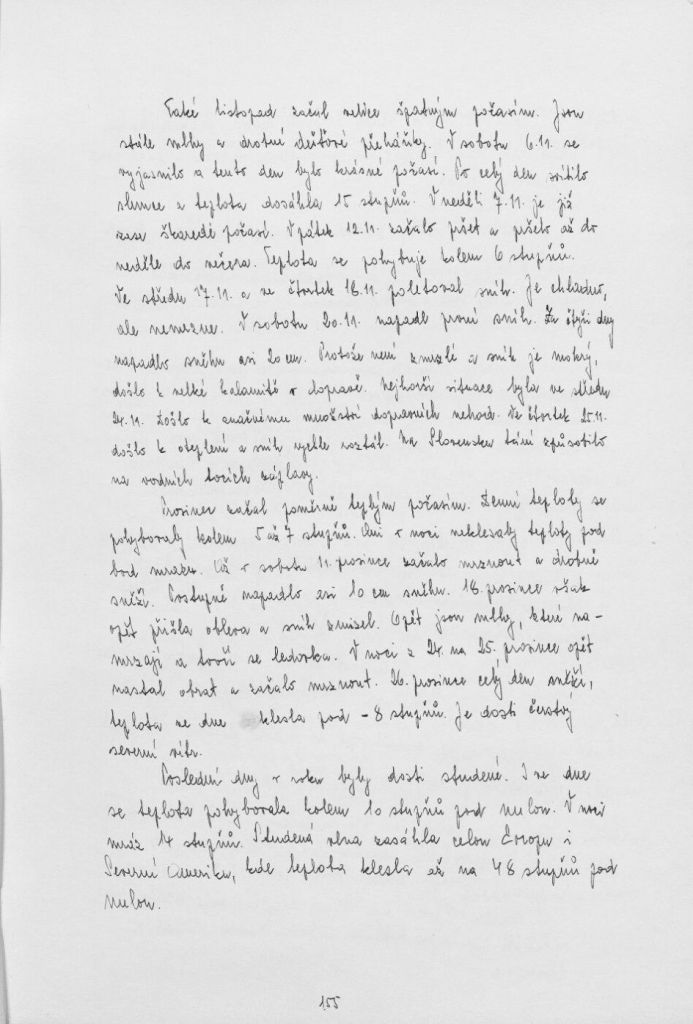 Také listopad začal velice špatným počasím. Jsou
stále mlhy a drobné dešťové přeháňky. V sobotu 6.11. se
vyjasnilo a tento den bylo krásné počasí. Po celý den svítilo
slunce a teplota dosáhla 15 stupňů. V neděli 7.11. je již
zase škaredé počasí. V pátek 12.11. začalo pršet a pršelo až do
neděle do večera. Teplota se pohybuje kolem 6 stupňů.
Ve středu 17.11. a ve čtvrtek 18.11. poletoval sníh. Je chladno,
ale nemrzne. V sobotu 20.11. napadl první sníh. Za čtyři dny
napadlo sněhu asi 20 cm. Protože není zmrzlé a sníh je mokrý,
došlo k velké kalamitě v dopravě. Nejhorší situace byla ve středu
24.11. Došlo k značnému množství dopravních nehod. Ve čtvrtek 25.11.
došlo k oteplení a sníh rychle roztál. Na Slovensku tání způsobilo
na vodních tocích záplavy.
Prosinec začal poměrně teplým počasím. Denní teploty se
pohybovaly kolem 5 až 7 stupňů. Ani v noci neklesaly teploty pod
bod mrazu. Až v sobotu 11. prosince začalo mrznout a drobně
sněží. Postupně napadlo asi 10 cm sněhu. 18. prosince však
opět přišla obleva a sníh zmizel. Opět jsou mlhy, které na-
mrzají a tvoří se ledovka. V noci z 24. na 25. prosince opět
nastal obrat a začalo mrznout. 26. prosince celý den sněží,
teplota ve dne klesla pod -8 stupňů. Je dosti čerstvý
severní vítr.
Poslední dny v roku byly dosti studené. I ve dne
se teplota pohybovala kolem 10 stupňů pod nulou. V noci
mráz 14 stupňů. Studená vlna zasáhla celou Evropu i
Severní Ameriku, kde teplota klesla až na 48 stupňů pod
nulou.
155